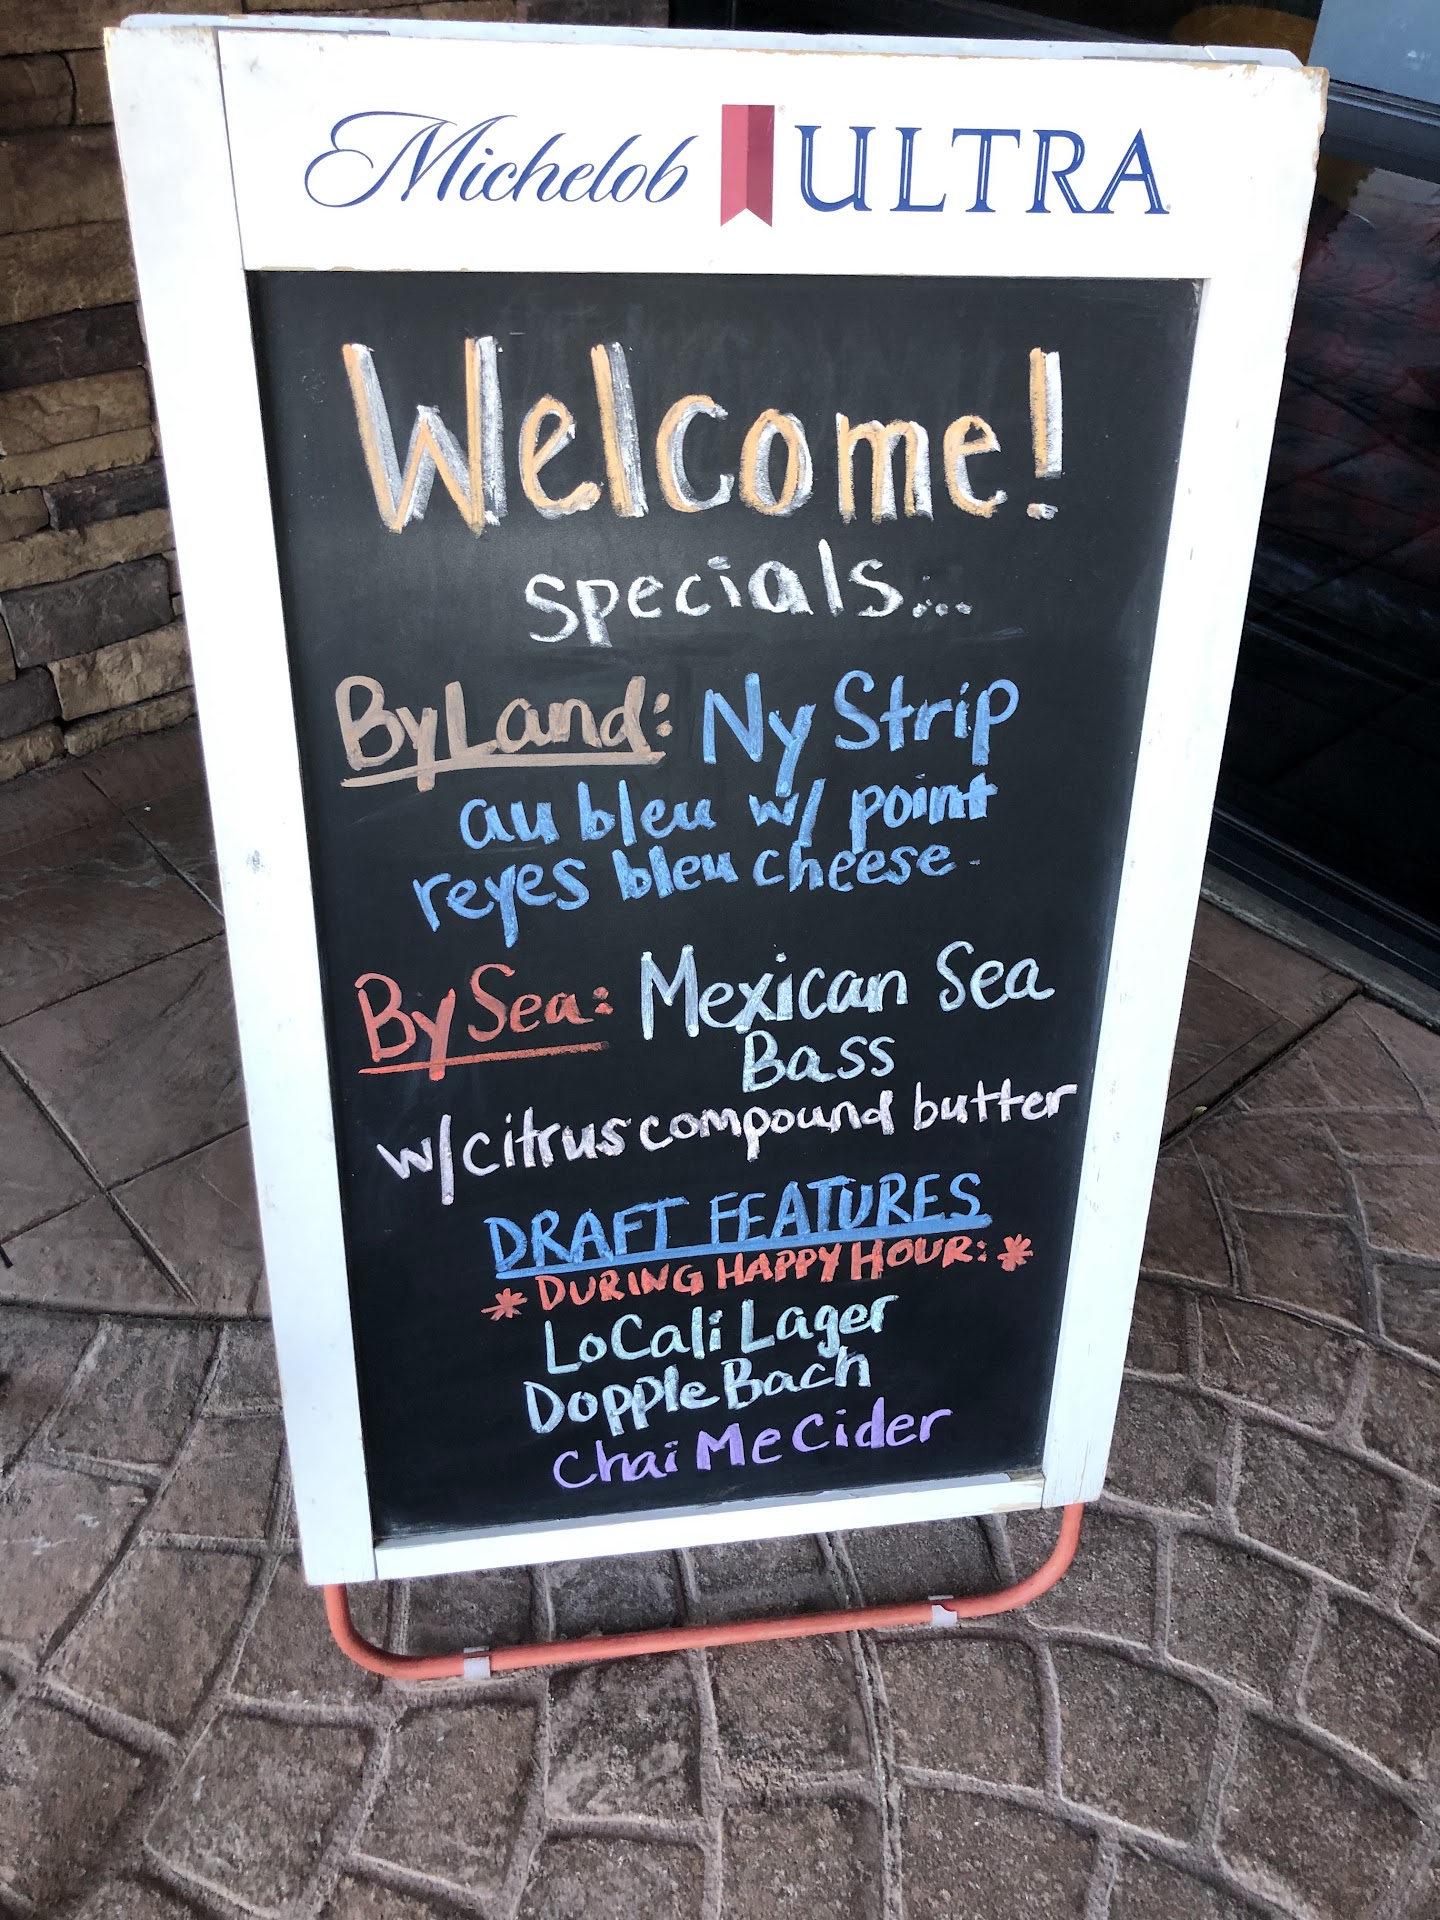 Michelob ULTRA
Welcome!
specials...
By Land: Ny Strip
au bleu w/ point
reyes bleu cheese
By Sea: Mexican Sea
Bass
w/ citrus compound butter
DRAFT FEATURES
* DURING HAPPY HOUR: *
LoCali Lager
Dopple Bach
Chai Me Cider